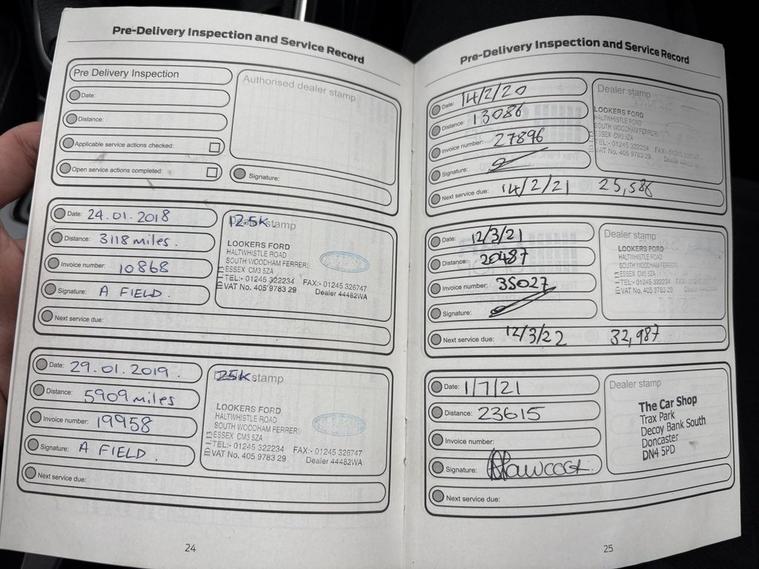 Pre-Delivery Inspection and Service Record
Pre Delivery Inspection
Date:
Distance:
Applicable service actions checked:
Open service actions completed:
Authorised dealer stamp
Signature:
Date: 24.01.2018
Distance: 3118 miles.
Invoice number: 10868
Signature: A FIELD.
Next service due:
12.5K stamp
LOOKERS FORD
HALTWHISTLE ROAD
SOUTH WOODHAM FERRER
ESSEX CM3 5ZA
TEL:- 01245 322234 FAX:- 01245 326747
VAT No. 405 9783 29 Dealer 44482WA
Date: 29.01.2019.
Distance: 5909 miles
Invoice number: 19958
Signature: A FIELD.
Next service due:
25K stamp
LOOKERS FORD
HALTWHISTLE ROAD
SOUTH WOODHAM FERRER
ESSEX CM3 5ZA
TEL:- 01245 322234 FAX:- 01245 326747
VAT No. 405 9783 29 Dealer 44482WA
24
Pre-Delivery Inspection and Service Record
Date: 14/2/20
Distance: 13086
Invoice number: 27896
Signature:
Next service due: 14/2/21 25,586
Dealer stamp
LOOKERS FORD
HALTWHISTLE ROAD
SOUTH WOODHAM FERRER
ESSEX CM3 5ZA
TEL:- 01245 322234 FAX:-
VAT No. 405 9783 29
Date: 12/3/21
Distance: 20487
Invoice number: 35027
Signature:
Next service due: 12/3/22 32,987
Dealer stamp
LOOKERS FORD
HALTWHISTLE ROAD
SOUTH WOODHAM FERRER
ESSEX CM3 5ZA
TEL:- 01245 322234
VAT No. 405 9783 29
Date: 1/7/21
Distance: 23615
Invoice number:
Signature:
Next service due:
Dealer stamp
The Car Shop
Trax Park
Decoy Bank South
Doncaster
DN4 5PD
25